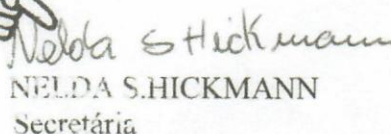 Nelda S Hickmann
NELDA S.HICKMANN
Secretária